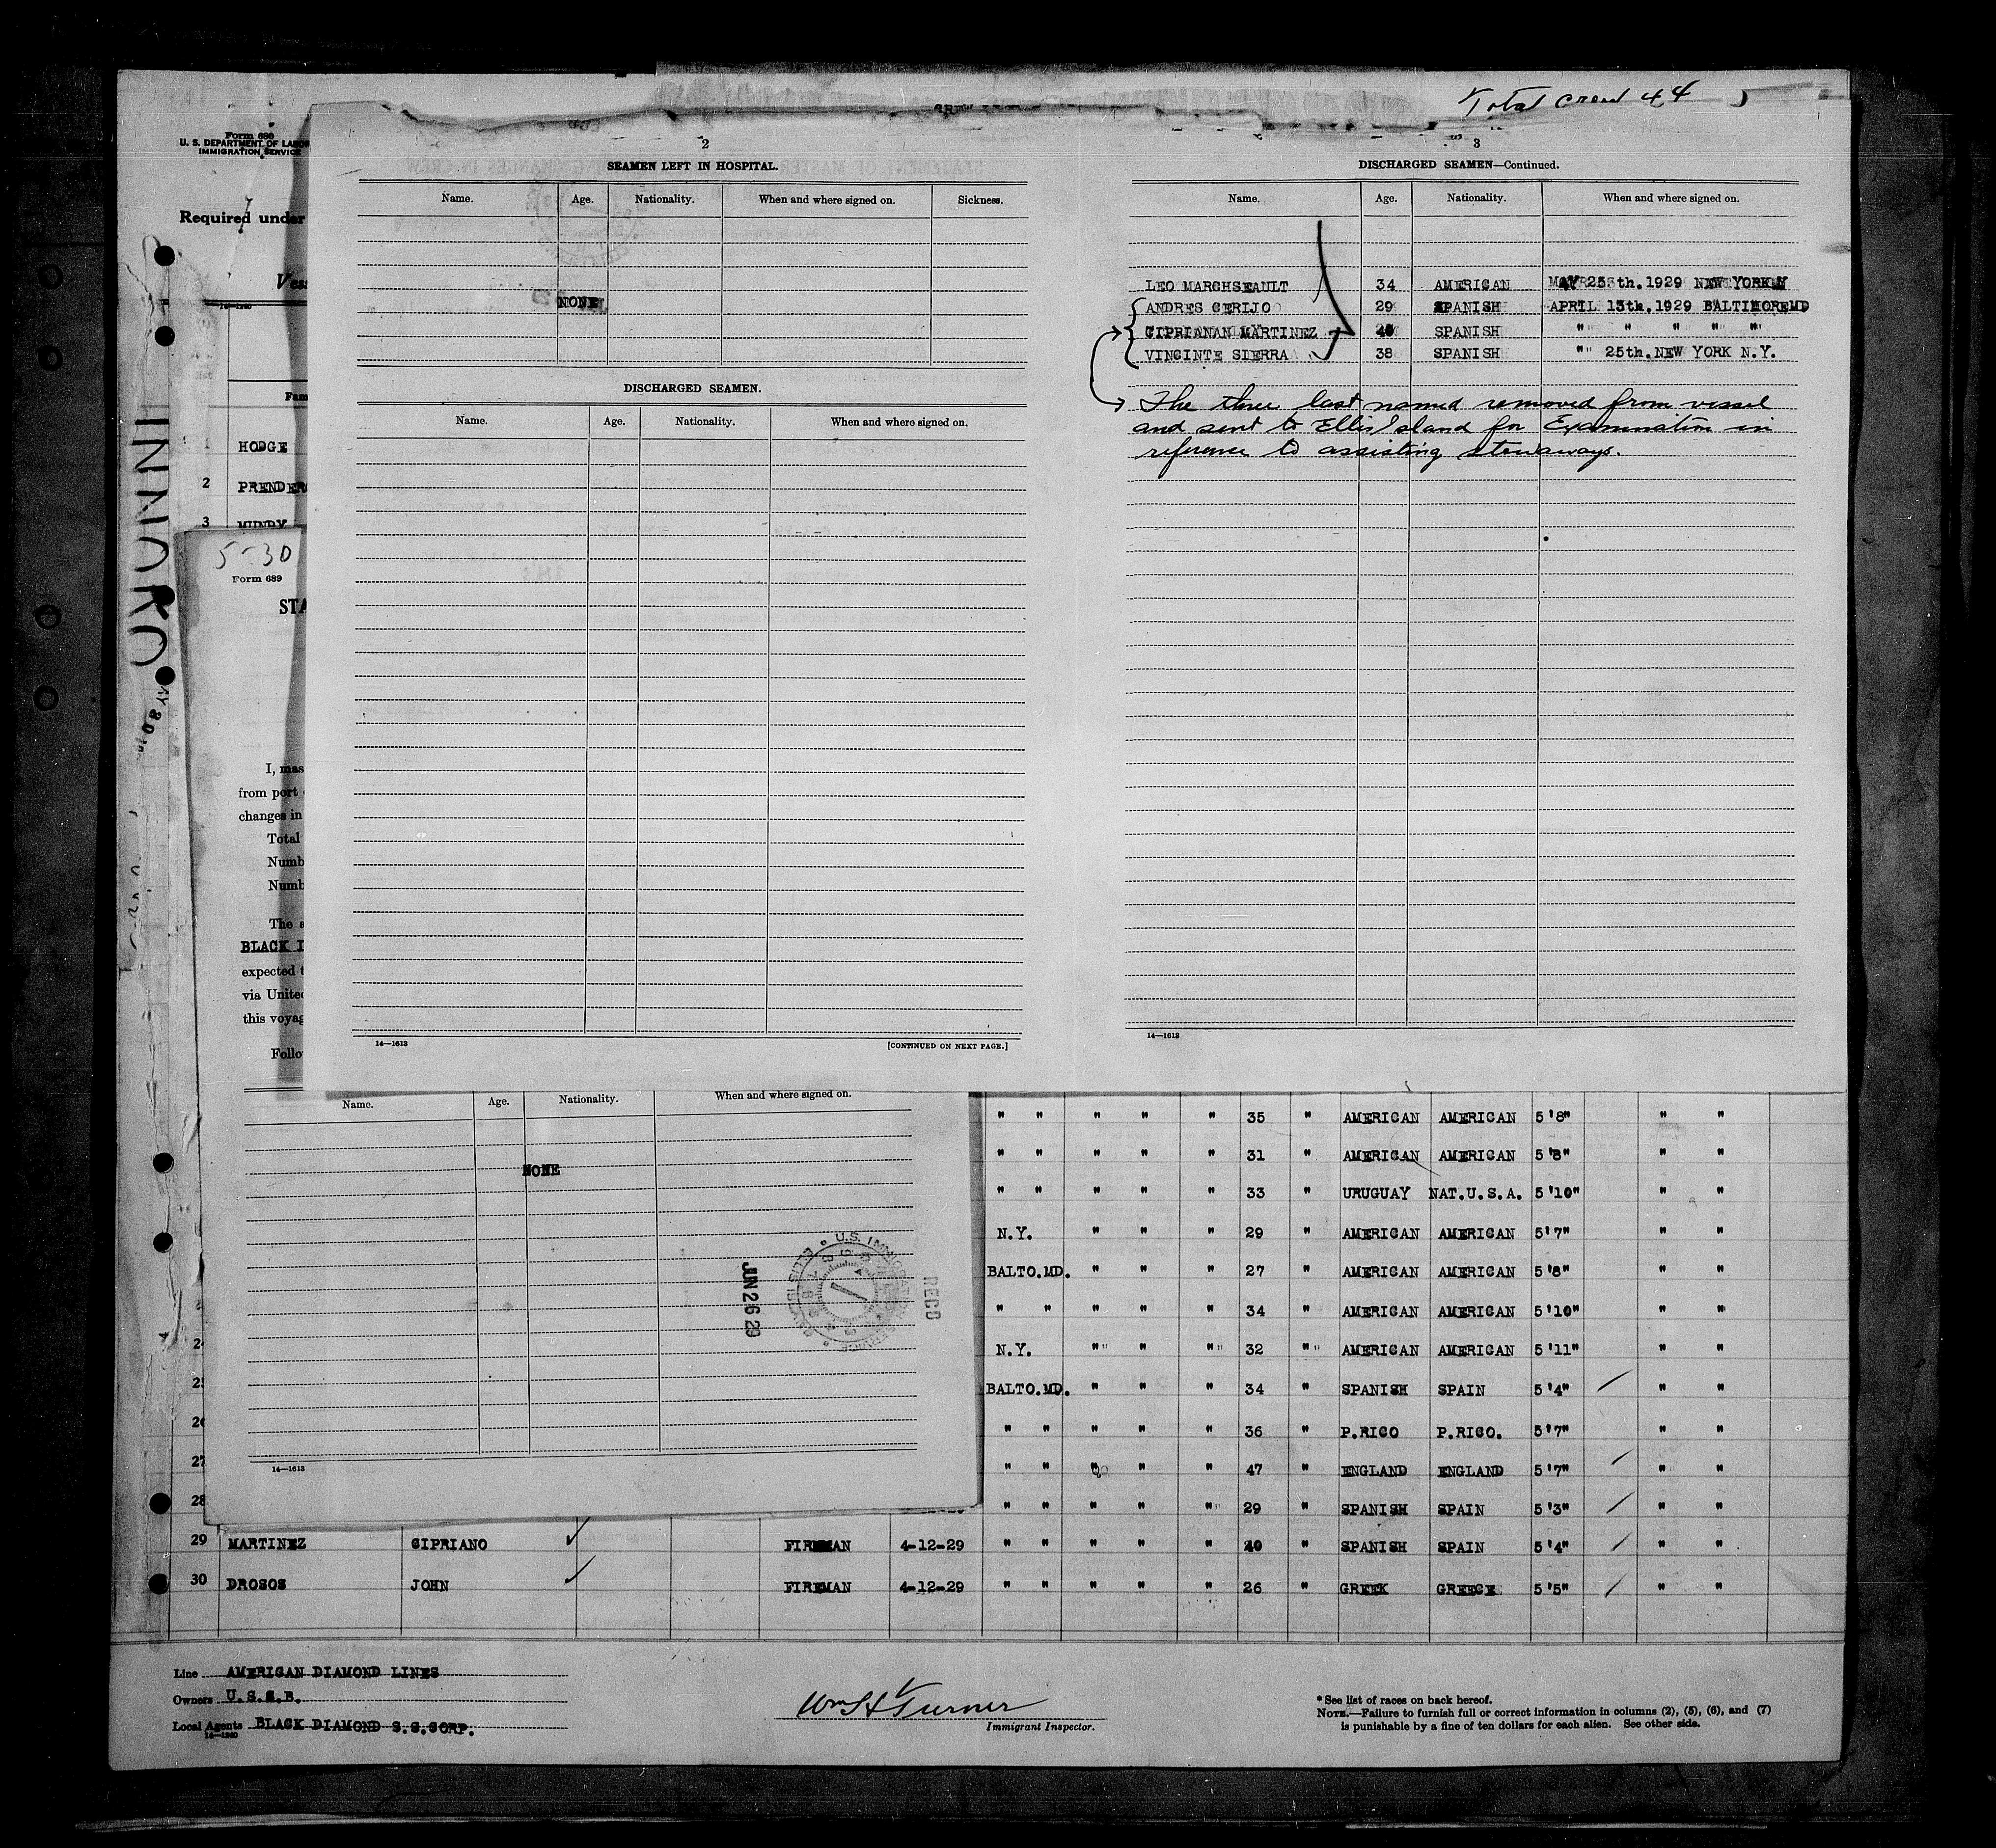 Total crew 44
Form 680
U. S. DEPARTMENT OF LABOR
IMMIGRATION SERVICE
Required under
INWARD
1 HODGE
2 PRENDER
3 MUNDY
5-30
Form 689
STA
I, mas
from port
changes in
Total
Numb
Numb
The a
BLACK
expected t
via United
this voyag
Follo
2
SEAMEN LEFT IN HOSPITAL.
Name. Age. Nationality. When and where signed on. Sickness.
NONE
DISCHARGED SEAMEN.
Name. Age. Nationality. When and where signed on.
14—1613
[CONTINUED ON NEXT PAGE.]
3
DISCHARGED SEAMEN—Continued.
Name. Age. Nationality. When and where signed on.
LEO MARCHSEAULT 34 AMERICAN MAY 25th. 1929 NEW YORK N
ANDRES CERIJO 29 SPANISH APRIL 13th. 1929 BALTIMORE MD
CIPRIANAN MARTINEZ 40 SPANISH " " " " "
VINCINTE SIERRA 38 SPANISH " 25th. NEW YORK N.Y.
The three last named removed from vessel
and sent to Ellis Island for Examination in
reference to assisting stowaways.
14—1613
Name. Age. Nationality. When and where signed on.
NONE
JUN 26 29
RECD
14—1613
" " " " " 35 " AMERICAN AMERICAN 5'8" " "
" " " " " 31 " AMERICAN AMERICAN 5'8" " "
" " " " " 33 " URUGUAY NAT.U.S.A. 5'10" " "
N.Y. " " " 29 " AMERICAN AMERICAN 5'7" " "
BALTO.MD. " " " 27 " AMERICAN AMERICAN 5'8" " "
" " " " " 34 " AMERICAN AMERICAN 5'10" " "
N.Y. " " " 32 " AMERICAN AMERICAN 5'11" " "
BALTO.MD. " " " 34 " SPANISH SPAIN 5'4" " "
" " " " " 36 " P.RICO P.RICO. 5'7" " "
27 " " " " " 47 " ENGLAND ENGLAND 5'7" " "
28 " " " " " 29 " SPANISH SPAIN 5'3" " "
29 MARTINEZ CIPRIANO FIREMAN 4-12-29 " " " " " 40 " SPANISH SPAIN 5'4" " "
30 DROSOS JOHN FIREMAN 4-12-29 " " " " " 26 " GREEK GREECE 5'5" " "
Line AMERICAN DIAMOND LINES
Owners U.S.S.B.
Local Agents BLACK DIAMOND S.S.CORP.
14—1240
Wm H Turner
Immigrant Inspector.
* See list of races on back hereof.
NOTE.—Failure to furnish full or correct information in columns (2), (5), (6), and (7)
is punishable by a fine of ten dollars for each alien. See other side.